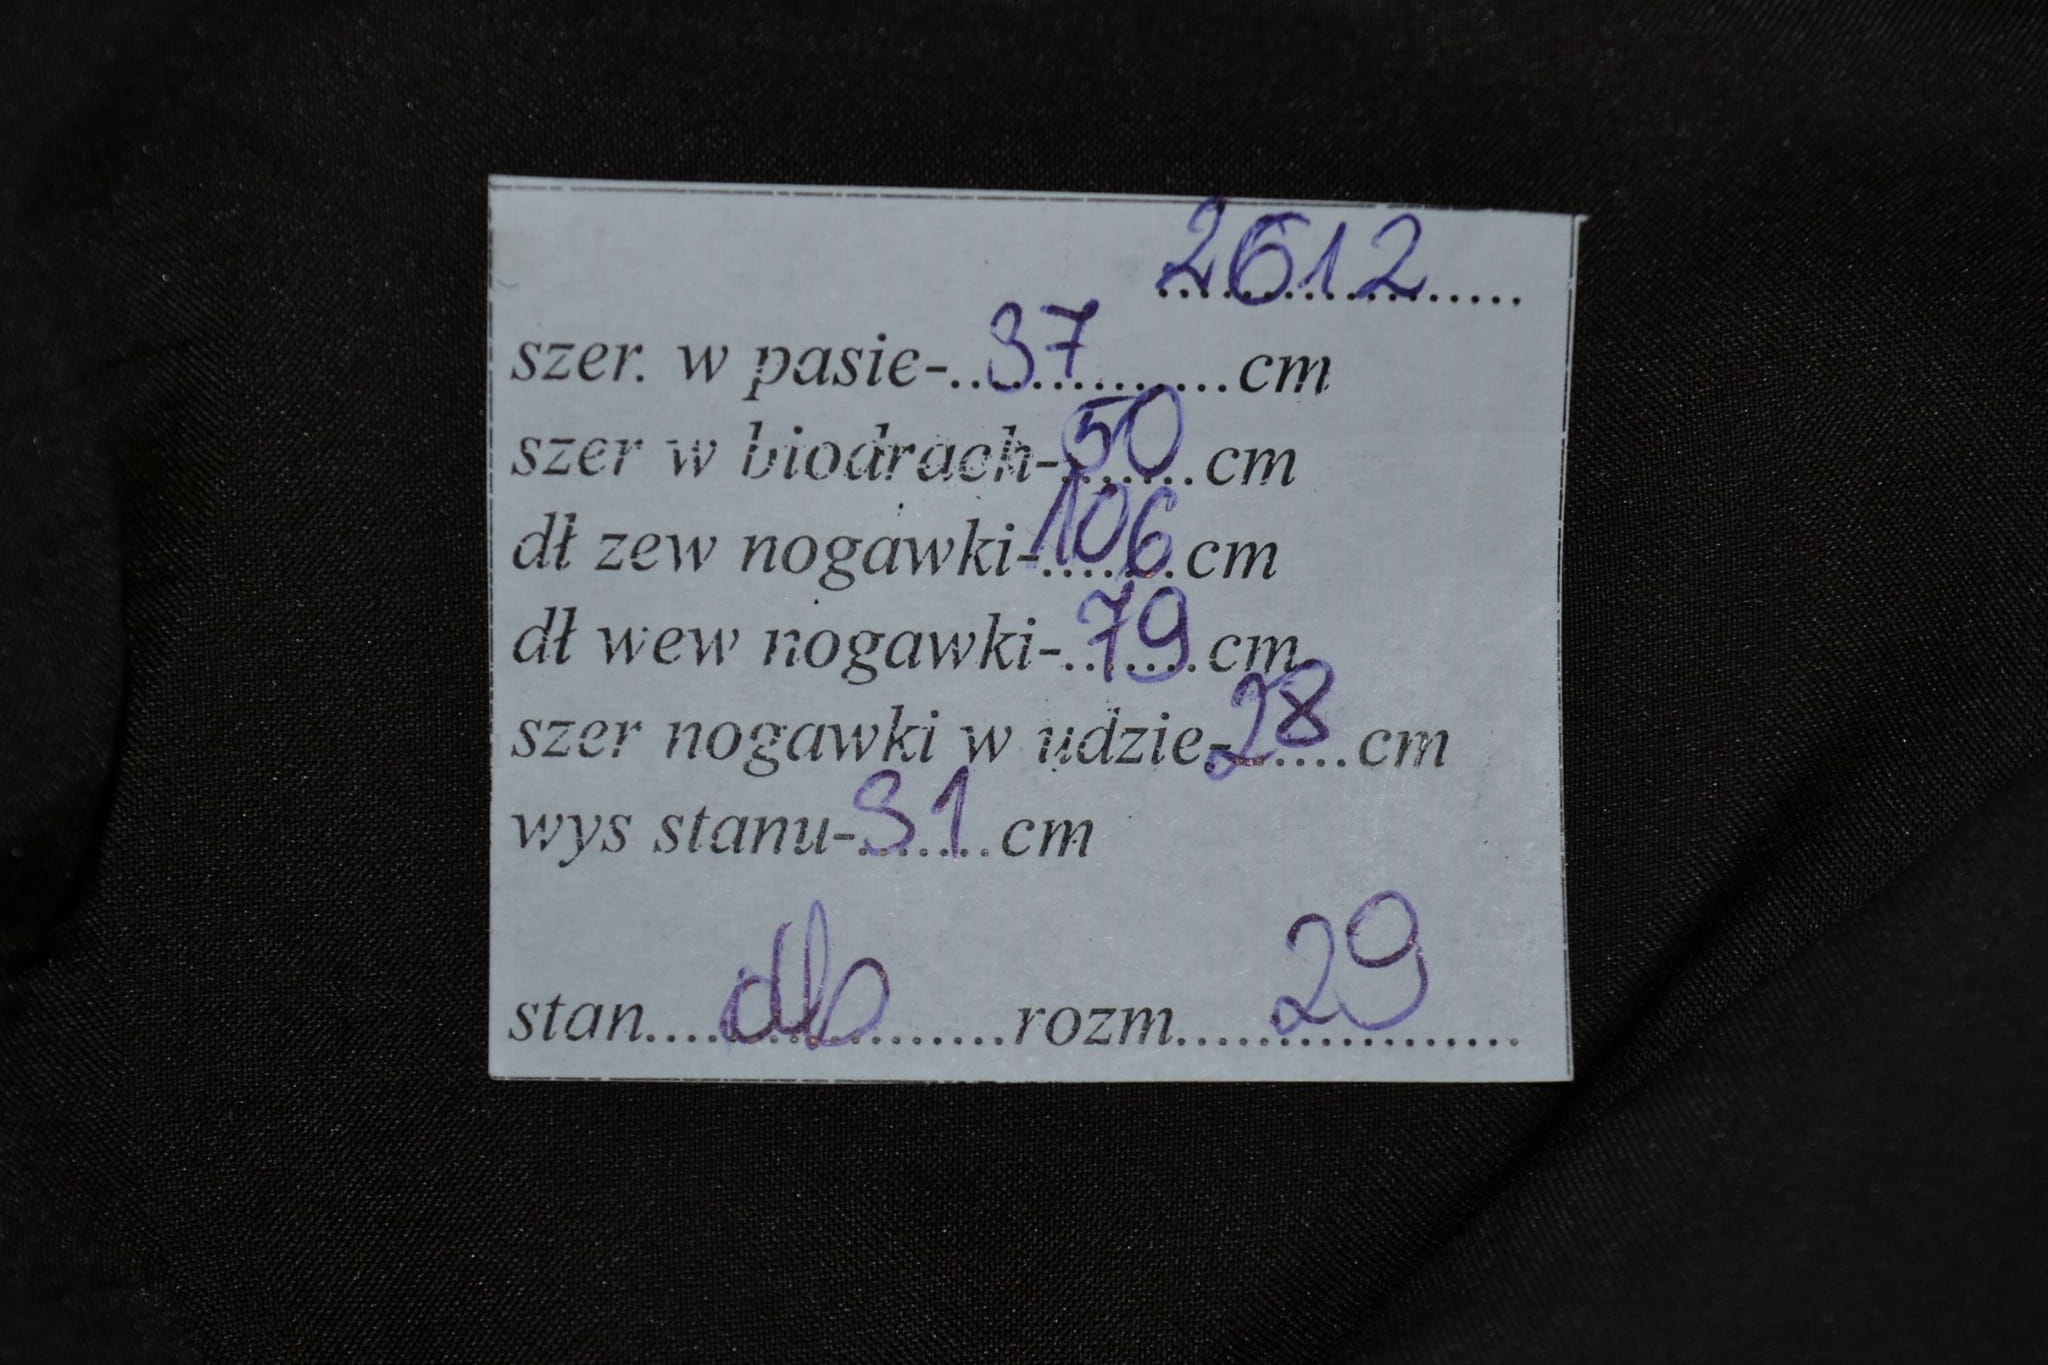 2612
szer. w pasie-..37..........cm
szer w biodrach-50.....cm
dł zew nogawki-106.cm
dł wew nogawki-.79.cm
szer nogawki w udzie-28....cm
wys stanu-31..cm
stan....db.......rozm....29....